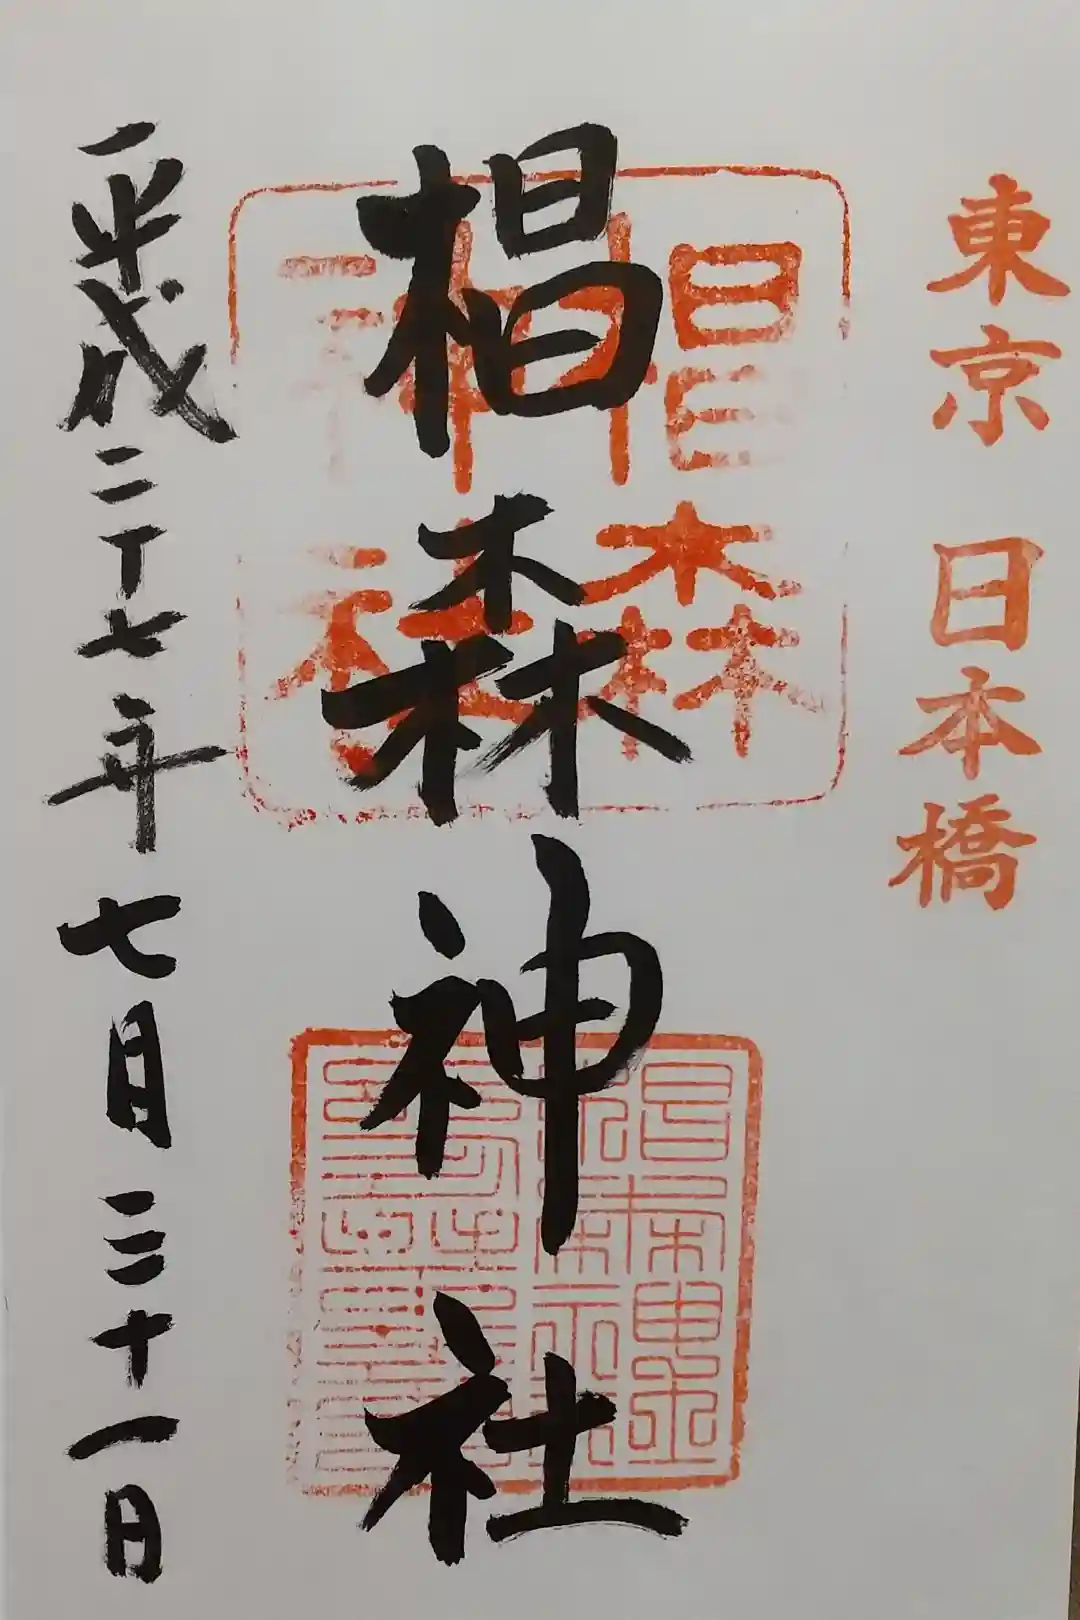 東京 日本橋
椙森神社
平成二十七年七月三十一日
椙森
神社